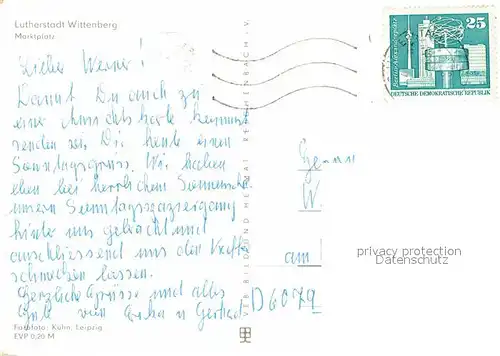 Lutherstadt Wittenberg
Marktplatz
Lieber Werner!
Damit Du auch zu
einer Ansichtskarte kommst
senden wir Dir heute einen
Sonntagsgruss. Wir haben
eben bei herrlichem Sonnenschein
unsern Sonntagsspaziergang
hinter uns gebracht und
anschliessend uns den Kaffee
schmecken lassen.
Herzliche Grüsse und alles
Gute von und Gerhard
Farbfoto: Kühn, Leipzig
EVP 0,20 M
VEB BILD UND HEIMAT REICHENBACH I. V.
25
DEUTSCHE DEMOKRATISCHE REPUBLIK
Herrn
W.
am
privacy protection
Datenschutz
D6079